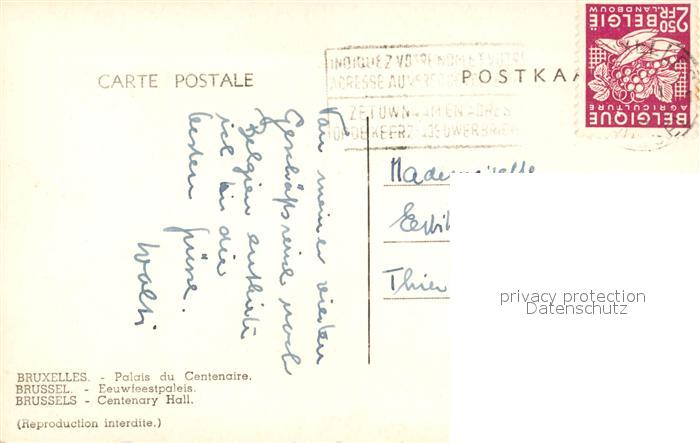 CARTE POSTALE
POSTKAA
INDIQUEZ VOTRE NOM ET VOTRE
ADRESSE AU VERSO DE
ZET UW NAAM EN ADRES
OP DE KEERZIJDE UWER BRIE
2.50 FR
BELGIË
LANDBOUW
AGRICULTURE
BELGIQUE
Von meiner vierten
Geschäftsreise nach
Belgien
ich Dir die
besten Grüsse.
Walti
Mademoiselle
Thier
privacy protection
Datenschutz
BRUXELLES. - Palais du Centenaire.
BRUSSEL. - Eeuwfeestpaleis.
BRUSSELS - Centenary Hall.
(Reproduction interdite.)